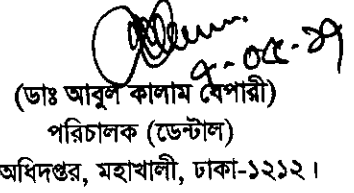 ৭-০৫-২৭
(ডাঃ আবুল কালাম বেপারী)
পরিচালক (ডেন্টাল)
অধিদপ্তর, মহাখালী, ঢাকা-১২১২।